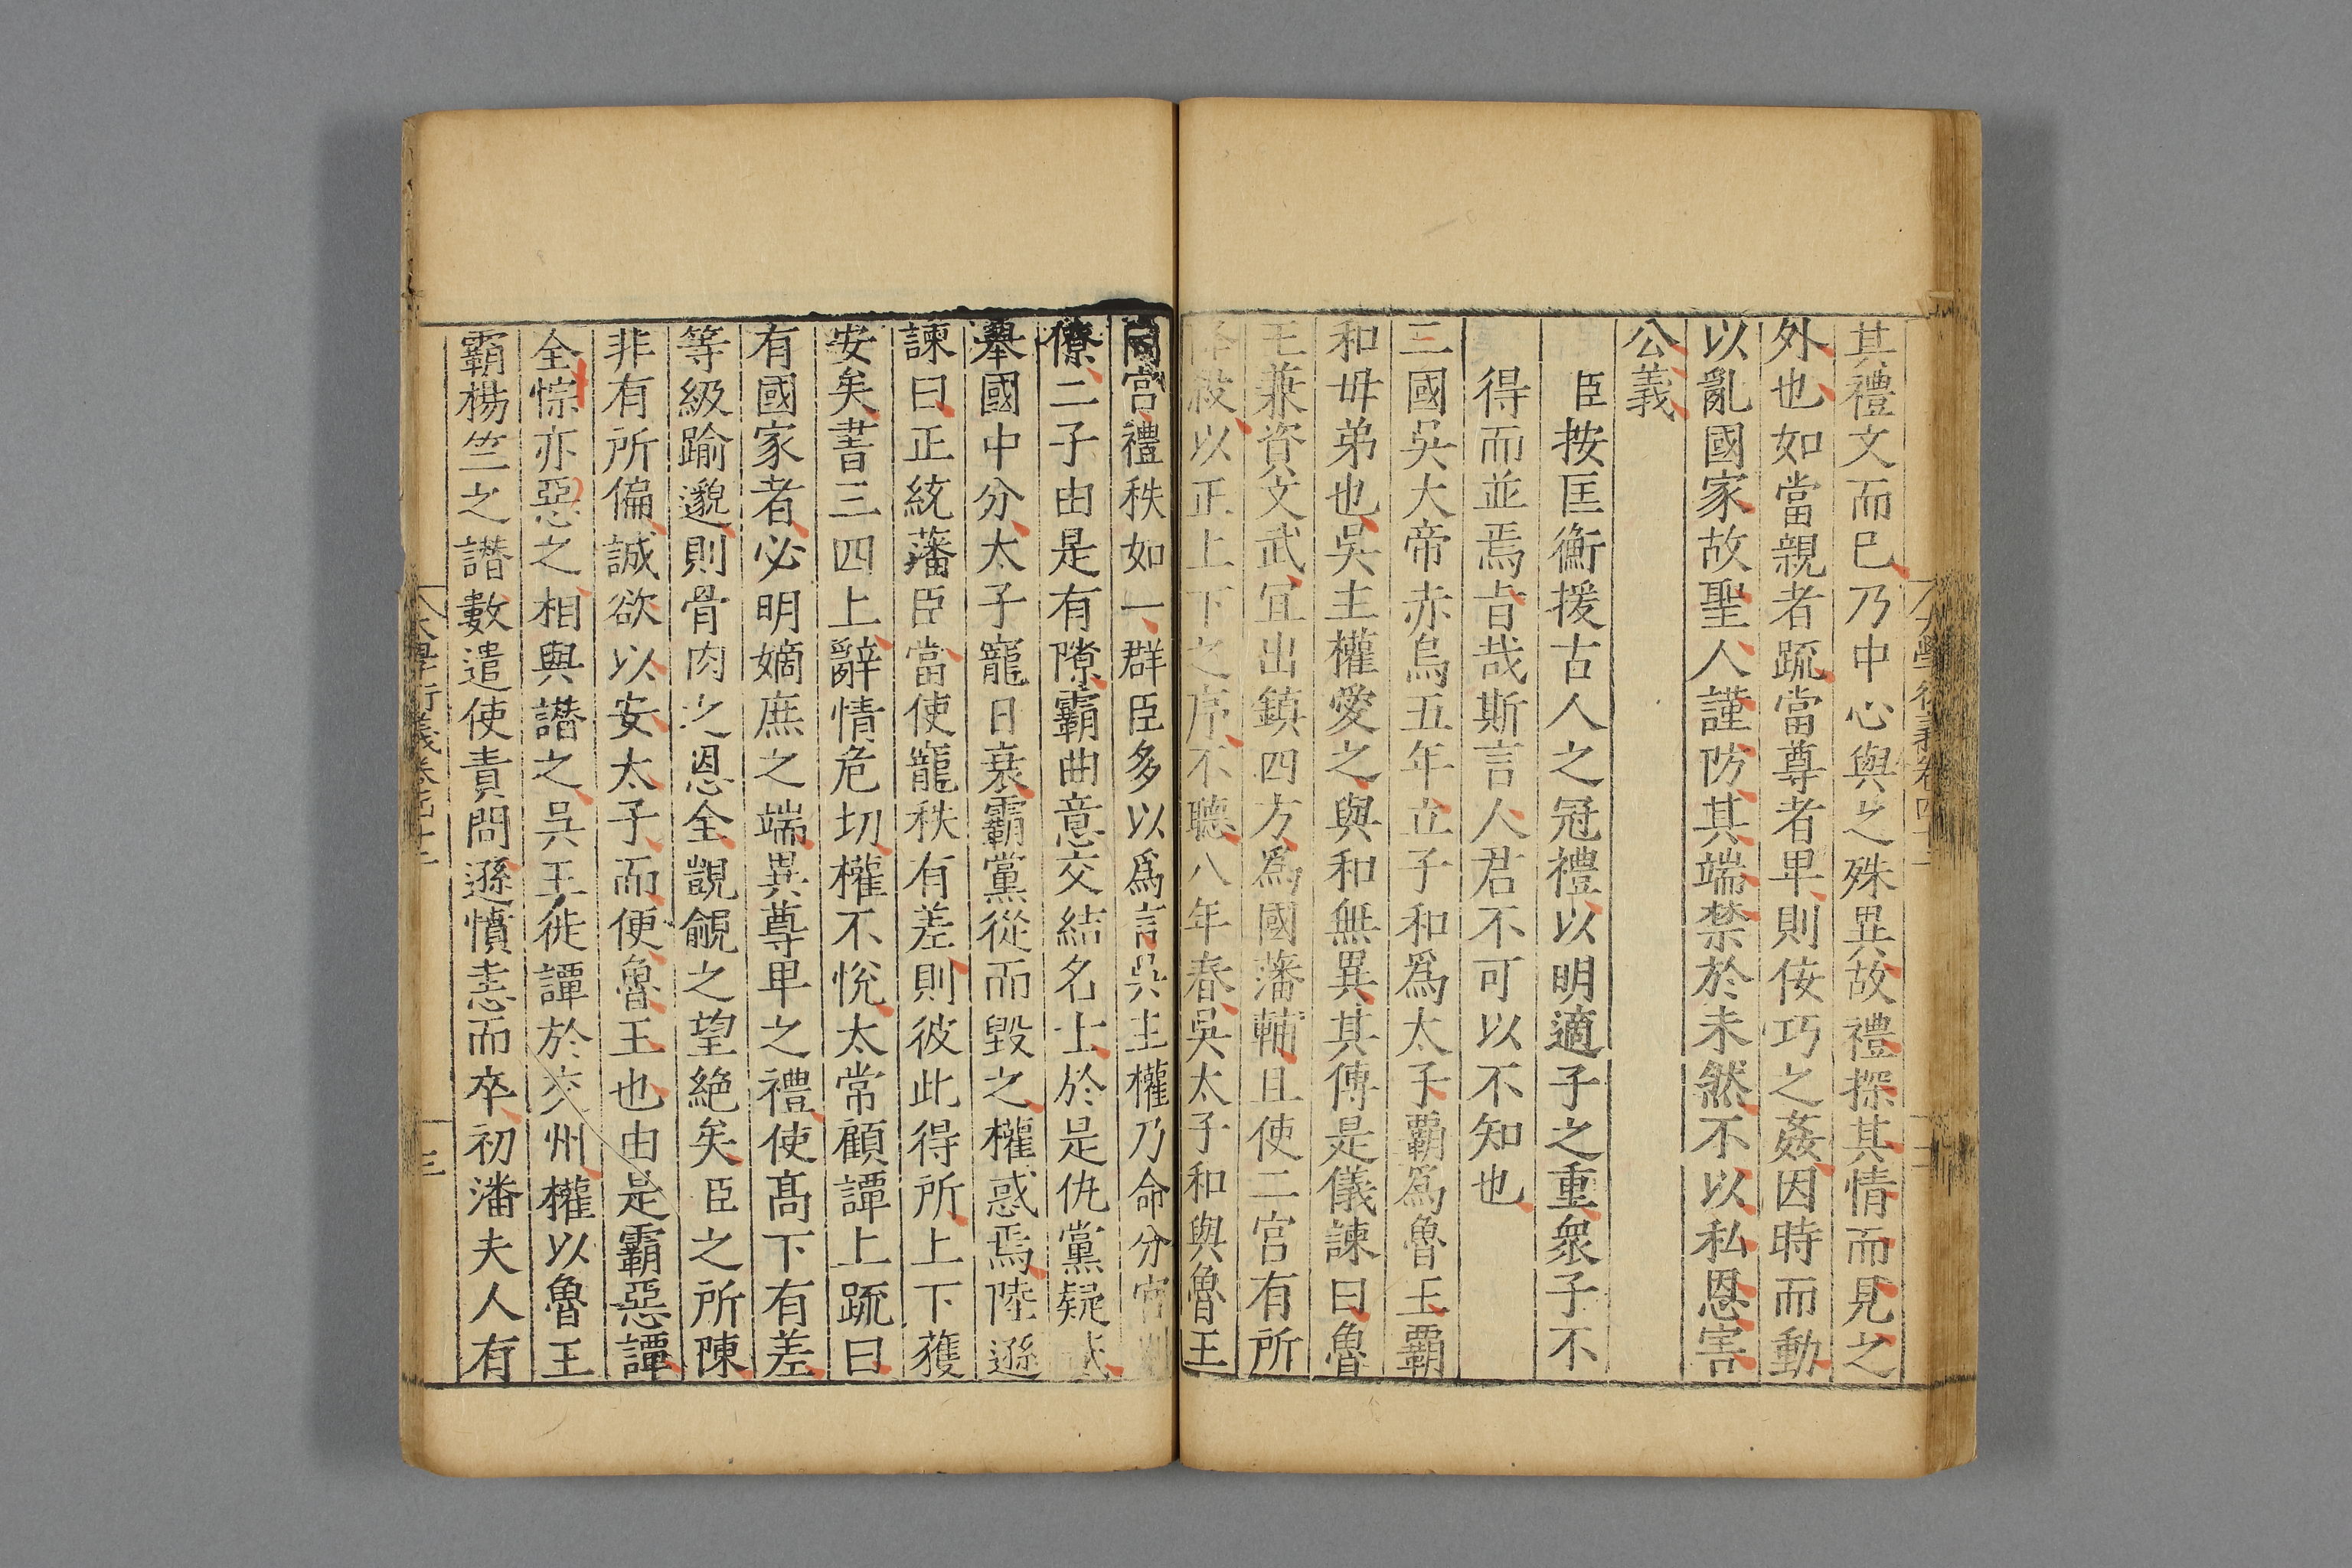 其禮文而已乃中心與之殊異故禮探其情而見之
外也如當親者疏當尊者卑則佞巧之姦因時而動
以亂國家故聖人謹防其端禁於未然不以私恩害
公義
臣按匡衡援古人之冠禮以明適子之重衆子不
得而並焉旨哉斯言人君不可以不知也
三國吳大帝赤烏五年立子和爲太子霸爲魯王霸
和毋弟也吳主權愛之與和無異其傅是儀諫曰魯
王兼資文武宜出鎮四方爲國藩輔且使二宮有所
降殺以正上下之序不聽八年春吳太子和與魯王
同宮禮秩如一群臣多以爲言吳主權乃命分宮別
僚二子由是有隙霸曲意交結名士於是仇黨疑貳
舉國中分太子寵日衰霸黨從而毀之權惑焉陸遜
諫曰正統藩臣當使寵秩有差則彼此得所上下獲
安矣書三四上辭情危切權不悅太常顧譚上疏曰
有國家者必明嫡庶之端異尊卑之禮使高下有差
等級踰邈則骨肉之恩全覬覦之望絕矣臣之所陳
非有所偏誠欲以安太子而便魯王也由是霸惡譚
全悰亦惡之相與譖之吳王徙譚於交州權以魯王
霸楊竺之譖數遣使責問遜憤恚而卒初潘夫人有
大學衍義卷四十二
三